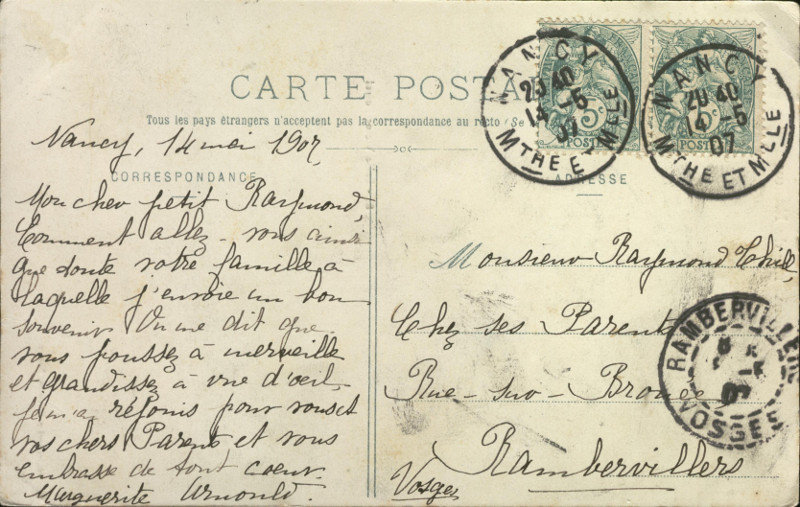 CARTE POSTA
Tous les pays étrangers n'acceptent pas la correspondance au recto (Se
NANCY
20 40
14 - 5
07
MTHE ET MLLE
NANCY
20 40
14 - 5
07
MTHE ET MLLE
5c
POSTES
POSTES
CORRESPONDANCE
Nancy, 14 mai 1907
Mon cher petit Raymond,
Comment allez-vous ainsi
que toute votre famille à
laquelle j'envoie un bon
souvenir. On me dit que
vous poussez à merveille
et grandissez à vue d'œil,
je m'a réjouis pour vous et
vos chers Parents et vous
embrasse de tout coeur.
Marguerite Arnould.
ADRESSE
Monsieur Raymond
Chez ses Parents
Rue-sur-Broue
Rambervillers
Vosges
RAMBERVILLERS
07
VOSGES